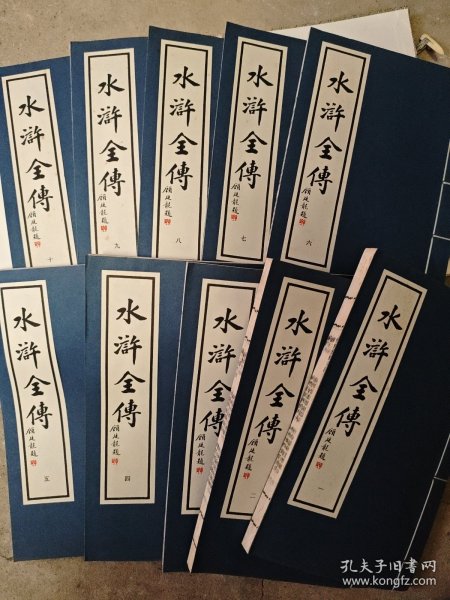 水滸全傳
顧廷龍題
十
水滸全傳
顧廷龍題
九
水滸全傳
顧廷龍題
八
水滸全傳
顧廷龍題
七
水滸全傳
顧廷龍題
六
水滸全傳
顧廷龍題
五
水滸全傳
顧廷龍題
四
水滸全傳
顧廷龍題
水滸全傳
顧廷龍題
二
水滸全傳
顧廷龍題
一
孔夫子旧书网
www.kongfz.com